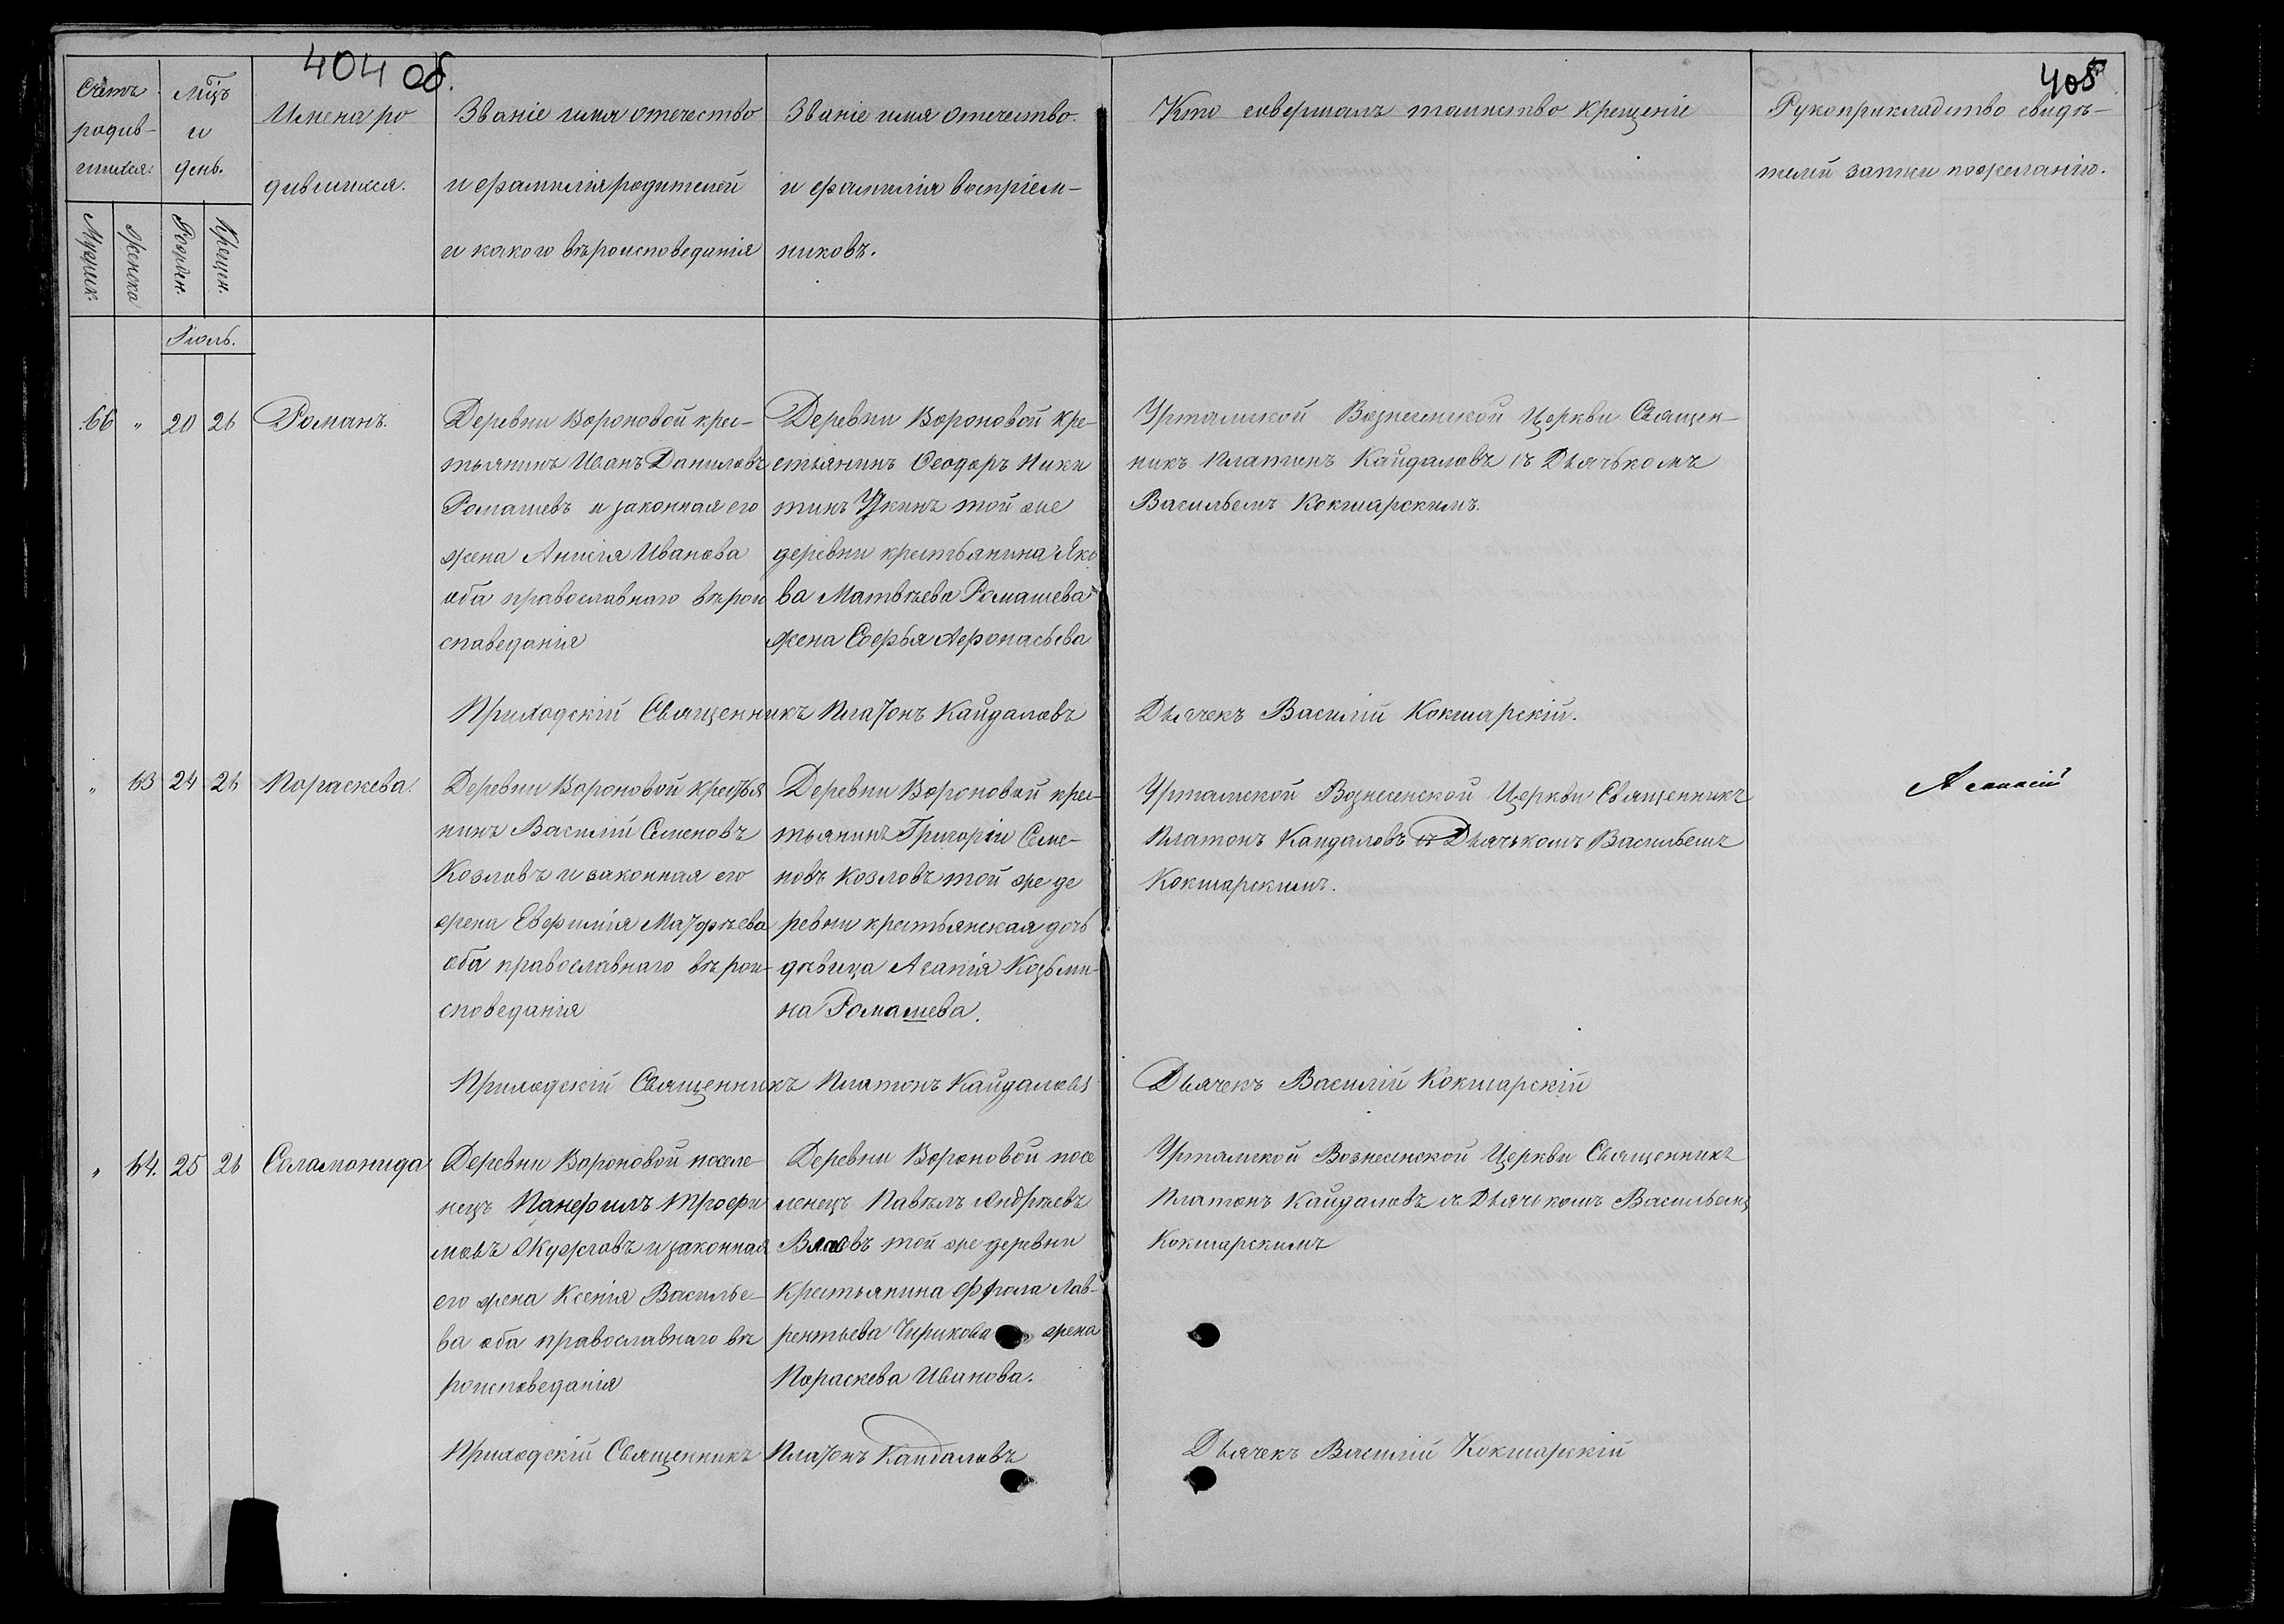 404 об.
405
Счетъ
родив-
шихся.
Мцъ
и
день.
Имена ро
дившихся.
Званіе имя отечество
и фамилія родителей
и какого вѣроисповеданія
Званіе имя отечество
и фамилія воспріем-
никовъ.
Кто совершалъ таинство крещеніе
Рукоприкладство свидѣ-
телей записи по желанію.
Мужеск.
Женска
Рожден.
Крещен.
Іюль.
66 " 20 26 Романъ.
Деревни Вороновой крес-
тьянинъ Иванъ Даниловъ
Ромашевъ и законная его
жена Анисія Иванова
оба православнаго вѣрои
споведанія
Деревни Вороновой кре-
стьянинъ Феодоръ Ники
тинъ той же
деревни крестьянина Яко
ва Матвѣева Ромашева
жена Софья Афонасьева
Урталиской Вознесенской Церкви Священ-
никъ Платонъ Кайдаловъ съ Дьячькомъ
Васильемъ Кокшарскимъ.
Приходскій Священникъ Платонъ Кайдаловъ
Дьячекъ Василій Кокшарскій.
" 63 24 26 Пораскева.
Деревни Вороновой крестья
нинъ Василій Семеновъ
Козловъ и законная его
жена Евфимія Матфѣева
оба православнаго вѣрои-
споведанія
Деревни Вороновой крес-
тьянинъ Григорій Семе-
новъ Козловъ той же де
ревни крестьянская дочь
дѣвица Агапія Козьми-
на Ромашева.
Урталиской Вознесенской Церкви Священникъ
Платонъ Кандаловъ съ Дьячькомъ Васильемъ
Кокшарскимъ.
Приходскій Священникъ Платонъ Кайдаловъ
Дьячекъ Василій Кокшарскій
" 64. 25 26 Соломонида
Деревни Вороновой поселе-
нецъ Панфилъ Трофи
мовъ Окужговъ и законная
его жена Ксенія Василье-
ва оба православнаго вѣ
роисповеданія
Деревни Вороновой посе
ленецъ Павелъ Андрѣевъ
той же деревни
крестьянина Ффрола Лав-
рентьева Чирикова жена
Пораскева Иванова.
Урталиской Вознесенской Церкви Священникъ
Платонъ Кайдаловъ съ Дьячькомъ Васильемъ
Кокшарскимъ
Приходскій Священникъ Платонъ Кандаловъ
Дьячекъ Василій Кокшарскій